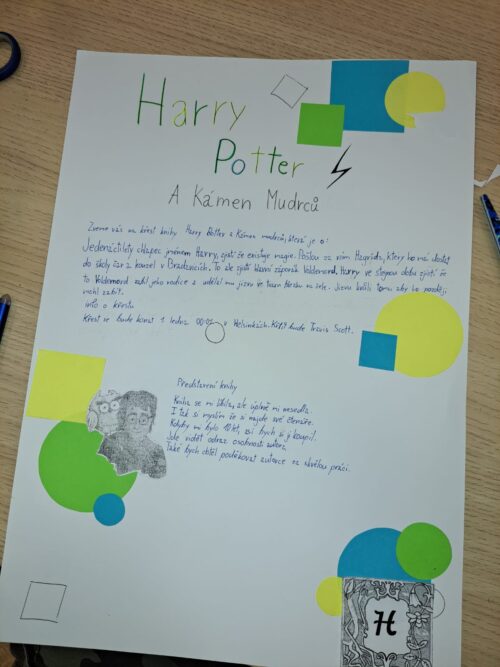 Harry
Potter
A Kámen Mudrců
Zveme vás na křest knihy Harry Potter a Kámen mudrců, která je o:
Jedenáctiletý chlapec jménem Harry, zjistí že existuje magie. Pošlou za ním Hagrida, který ho má dostat
do školy čar a kouzel v Bradavicích. To ale zjistí hlavní záporák Voldemord. Harry ve stejnou dobu zjistí že
to Voldemord zabil jeho rodiče a udělal mu jizvu ve tvaru blesku na čele. Jizvu kvůli tomu aby ho později
mohl zabít.
info o křestu
Křest se bude konat 1 ledna 00:01 v Helsinkách. Křtít bude Travis Scott.
Představení knihy
Kniha se mi líbila, ale úplně mi nesedla.
I tak si myslím že si najde své čtenáře.
Kdyby mi bylo 10 let, asi bych si ji koupil.
Jde vidět odraz osobnosti autora.
Také bych chtěl poděkovat autorce za skvělou práci.
H